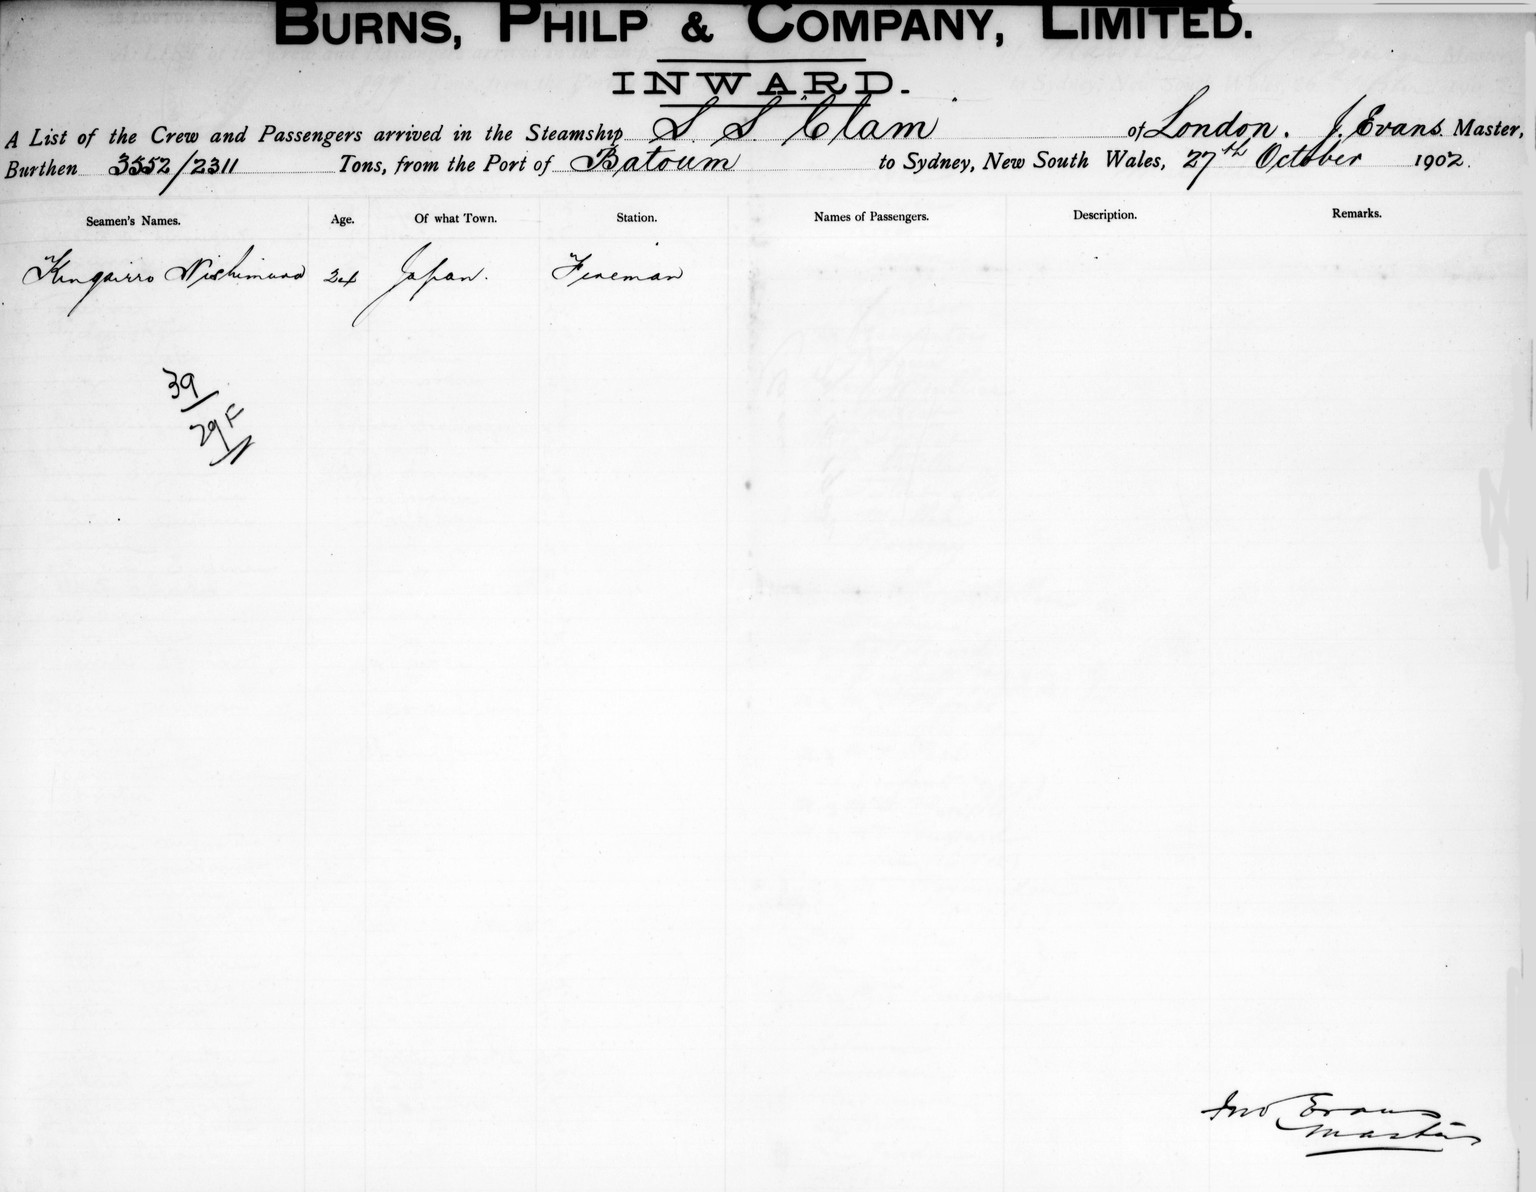 BURNS, PHILP & COMPANY, LIMITED.
INWARD.
A List of the Crew and Passengers arrived in the Steamship S. S. "Clam" of London. J. Evans. Master,
Burthen 3552/2311 Tons, from the Port of Batoum to Sydney, New South Wales, 27th October 1902.
Seamen's Names. Age. Of what Town. Station. Names of Passengers. Description. Remarks.
Kingairro Nishimura 24 Japan. Fireman
39
29 F
Jno Evans
Master